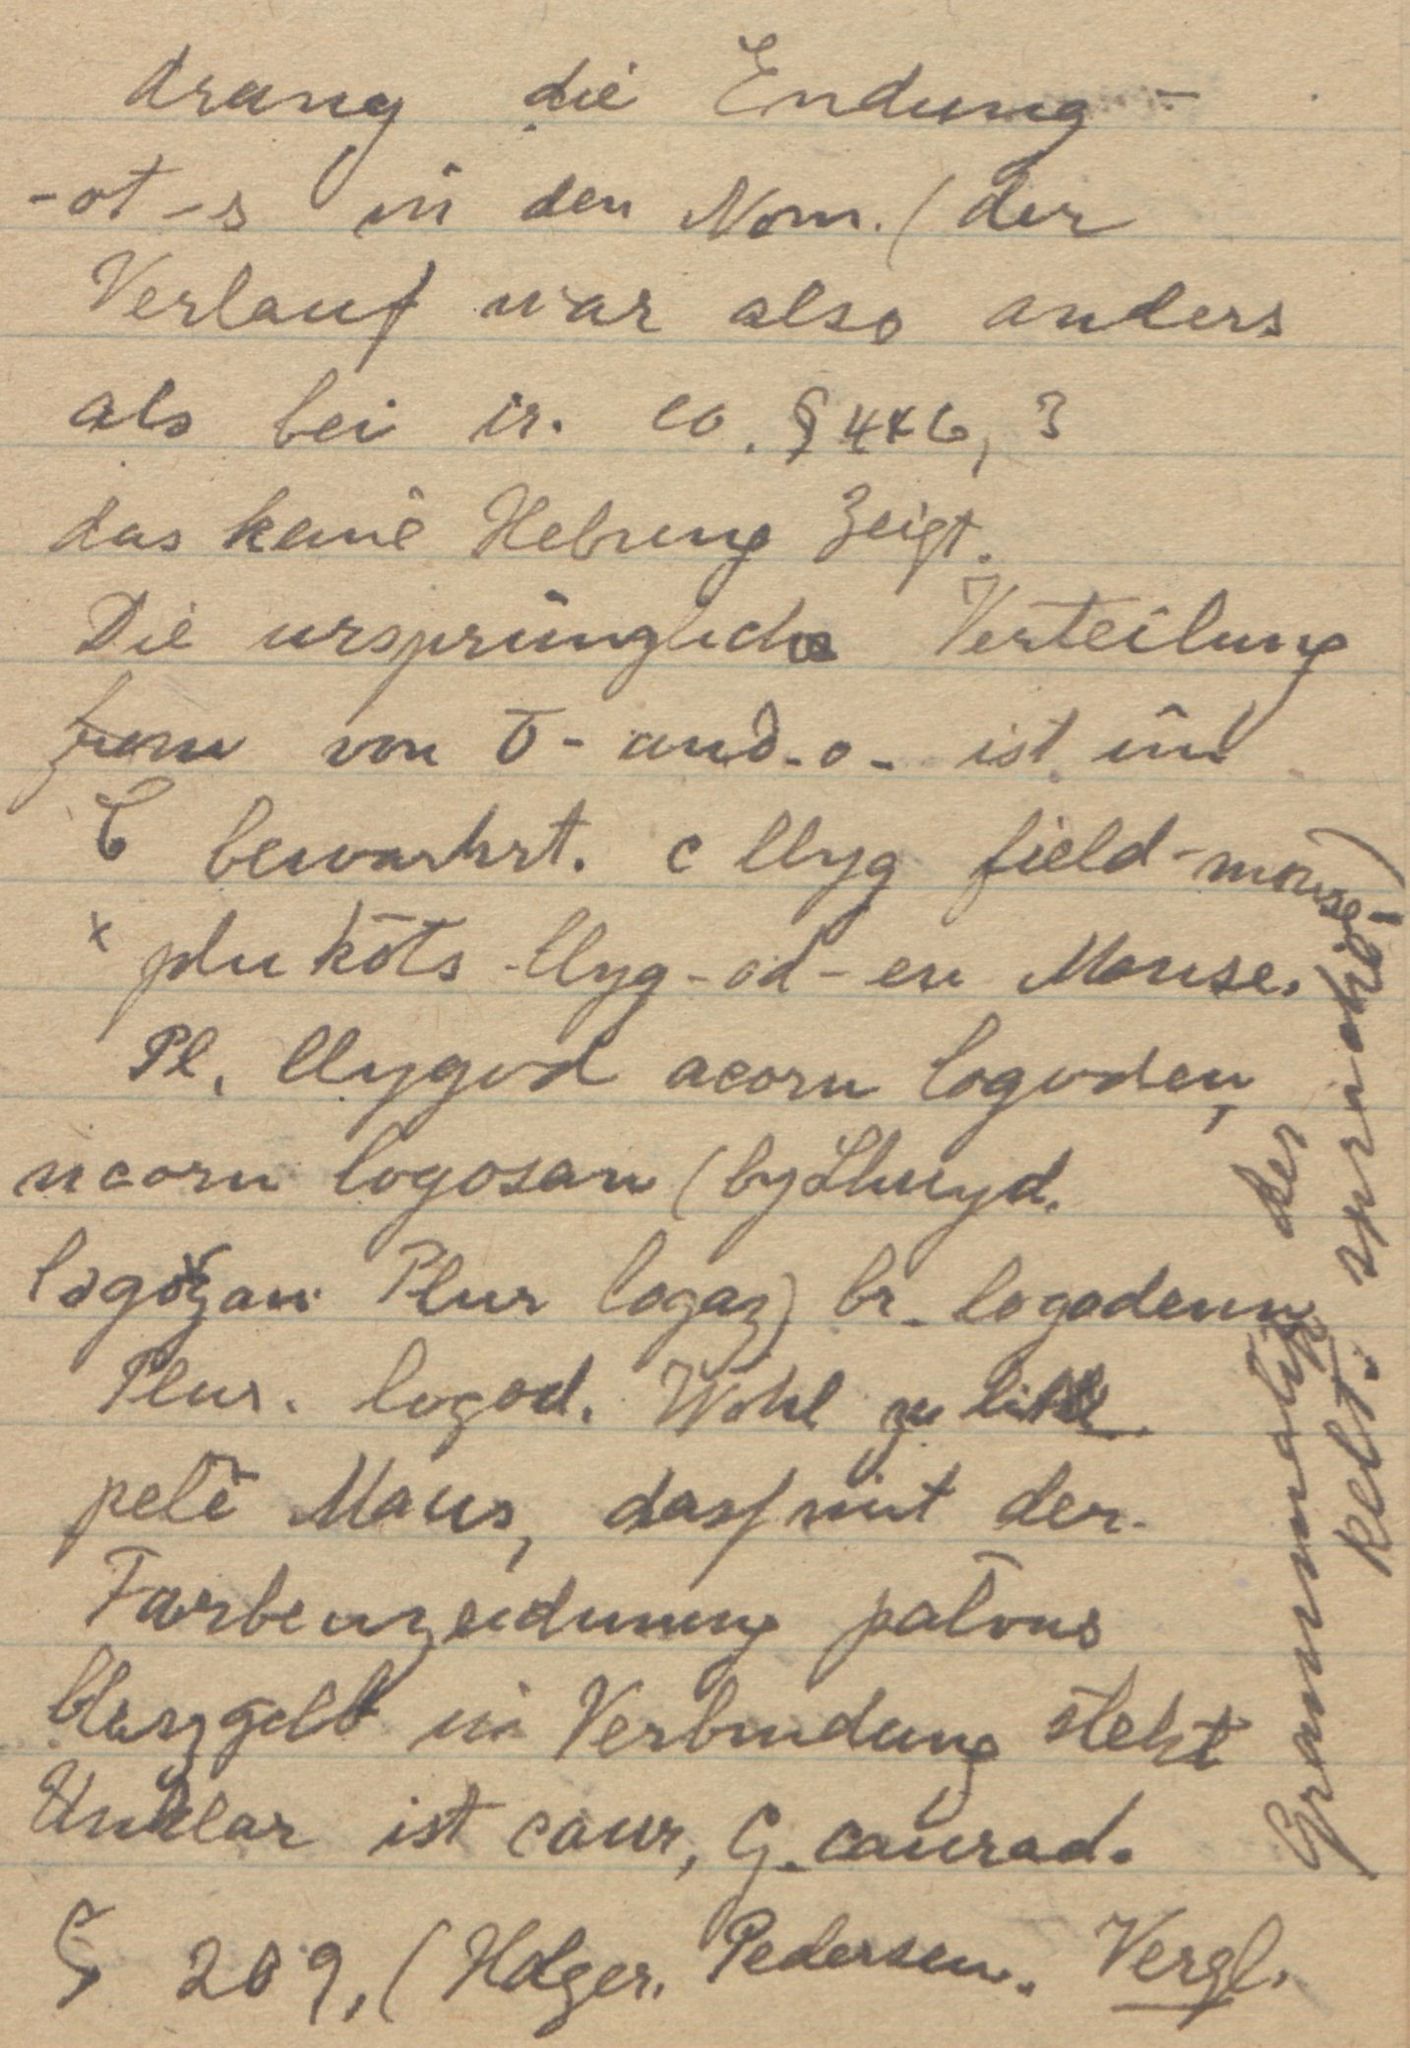 drang die Endung -
-ot-s in den Nom. (der
Verlauf war also anders
als bei ir. eo. § 446, 3
das keine Hebung zeigt.
Die ursprüngliche Verteilung
von ō- und -o- ist im
C bewahrt. c llyg field-mouse-)
x plukōts llyg-od-en Mouse.
Pl. llygod acorn logoden,
ncorn logosan (by Lhuyd.
logožan Plur logaz) br. logodenn
Plur. logod. Wohl zu
pelē Maus, dass mit der
Farbenzeichnung palvus
blaszgelb in Verbindung steht
Unklar ist caur, G. caurad.
§ 209. (Holger. Pedersen. Vergl.
Grammatik der
kelt. sprache)